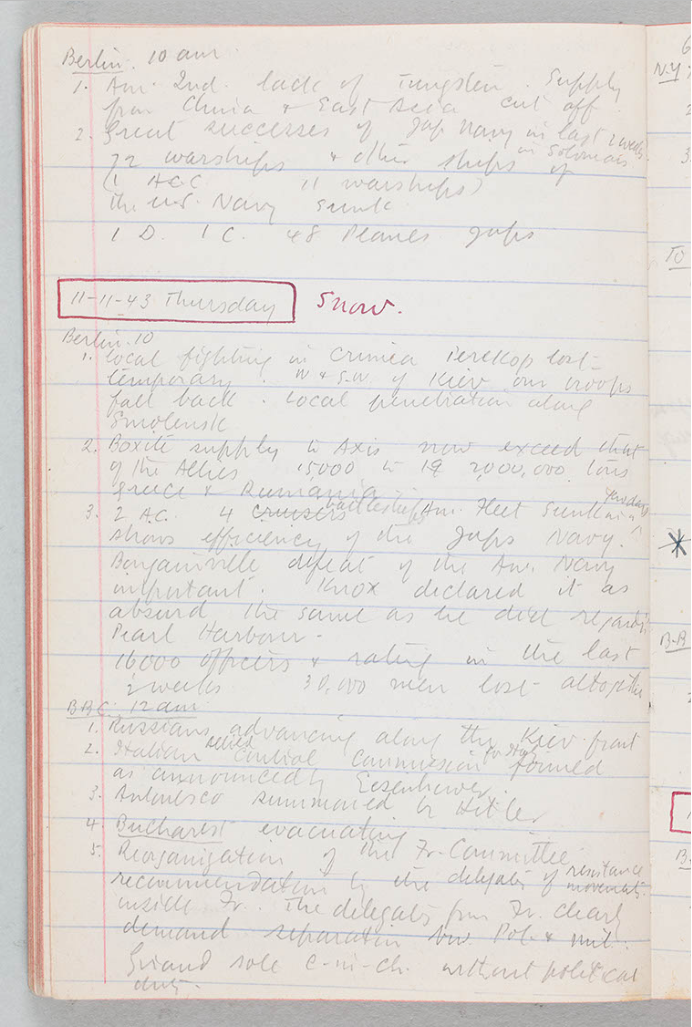 Berlin. 10 am.
1. Am. 2nd. lack of Tungsten. Supply
from China & East Asia cut off
2. Great successes of Jap Navy in last 2 weeks
in Solomons
72 warships & other ships of
(1 A.C.C. 11 warships)
the U.S. Navy sunk
1 D. 1 C. 48 Planes Japs
11-11-43 Thursday Snow.
Berlin. 10
1. Local fighting in Crimea Perekop lost
temporary. W & S.W of Kiev our troops
fall back. Local penetration along
Smolensk
2. Boxite supply to Axis now exceed that
of the Allies 15000 to 19 2,000,000 tons
Greece & Rumania
3. 2 A.C. 4 cruisers battleships Am. Fleet sunk
shows efficiency of the Japs Navy.
Bougainville defeat of the Am. Navy
important. Knox declared it as
absurd the same as he did regarding
Pearl Harbour.
16000 officers & rating in the last
2 weeks 30,000 men lost altogether
B.B.C. 12 am
1. Russians advancing along the Kiev front
2. Italian Allied Control Commission to Italy formed
as announced by Eisenhower.
3. Antonesco summoned by Hitler
4. Bucharest evacuating
5. Reorganization of the Fr. Committee
recommendation by the delegates of resistance
movements
inside Fr. The delegates from Fr. clearly
demand separation bw. Pol. & mil.
Giraud sole c-in-ch. without political
duty.
N.Y.
3.
TO
B.B